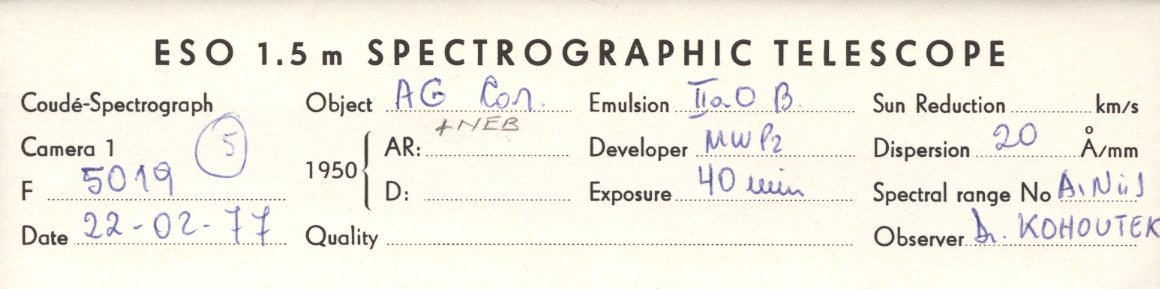 ESO 1.5 m SPECTROGRAPHIC TELESCOPE
Coudé-Spectrograph Object AG Car. Emulsion IIaO B. Sun Reduction km/s
+NEB
Camera 1 5 1950 AR: Developer MWP2 Dispersion 20 Å/mm
F 5019 D: Exposure 40 min Spectral range No
Date 22-02-77 Quality Observer Dr. KOHOUTEK